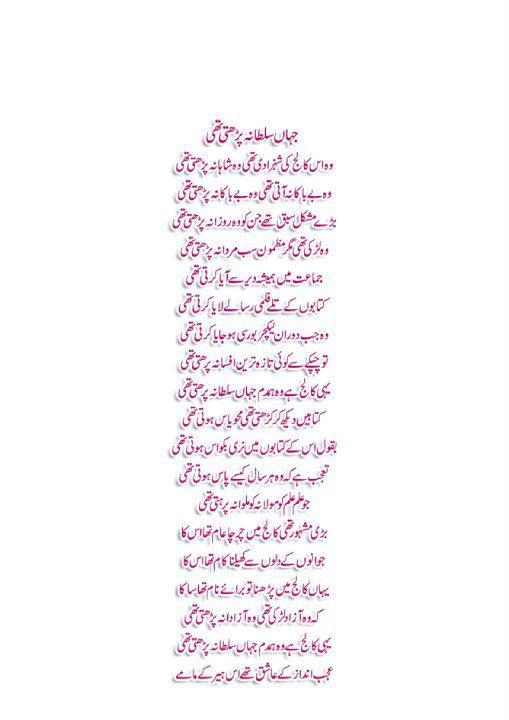 جہاں سلطانہ پڑھتی تھی
وہ اس کالج کی شہزادی تھی وہ شاہانہ پڑھتی تھی
وہ بے باکانہ آتی تھی وہ بے باکانہ پڑھتی تھی
بڑے مشکل سبق تھے جن کو وہ روزانہ پڑھتی تھی
وہ لڑکی تھی مگر مظمون سب مردانہ پڑھتی تھی
جماعت میں ہمیشہ دیر سے آیا کرتی تھی
کتابوں کے تلے فلمی رسالے لایا کرتی تھی
وہ جب دوران لیکچر بور سی ہو جایا کرتی تھی
تو چپکے سے کوئی تازہ ترین افسانہ پڑھتی تھی
یہی کالج ہے وہ ہمدم جہاں سلطانہ پڑھتی تھی
کتابیں دیکھ کر کڑھتی تھی محو یاس ہوتی تھی
بقول اس کے کتابوں میں نری بکواس ہوتی تھی
تعجب ہے کہ وہ ہر سال کیسے پاس ہوتی تھی
جو علم علم کو مولانہ کو ملوانہ پڑہتی تھی
بڑی مشہور تھی کالج میں چرچا عام تھا اس کا
جوانوں کے دلوں سے کھیلنا کام تھا اس کا
یہاں کالج میں پڑھنا تو برائے نام تھا سا کا
کہ وہ آزاد لڑکی تھی وہ آزادانہ پڑھتی تھی
یہی کالج ہے وہ ہمدم جہاں سلطانہ پڑھتی تھی
عجب انداز کے عاشق تھے اس ہیر کے مامے